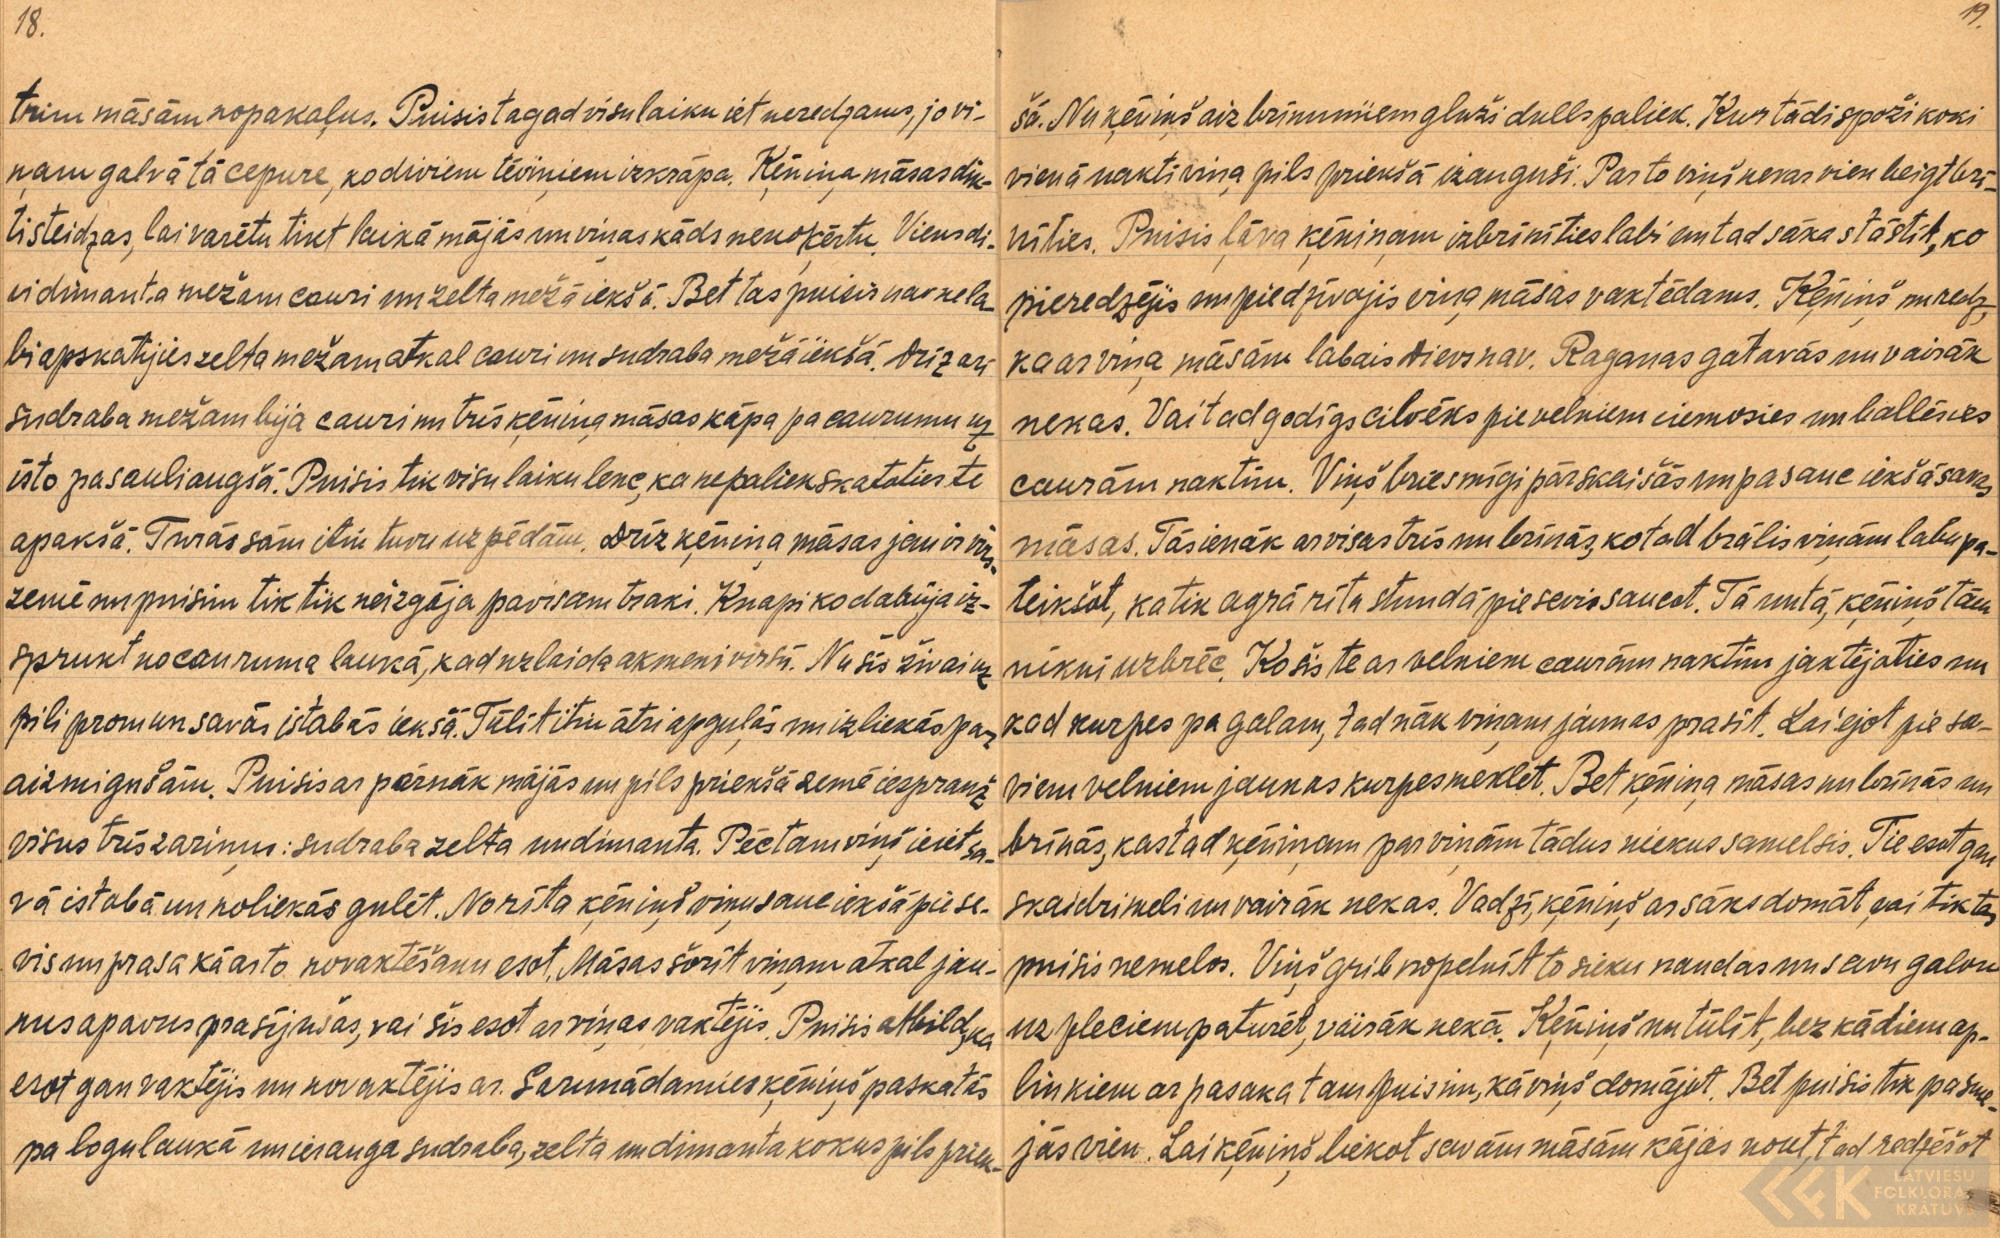 18.
trim māsām nopakaļus. Puisis tagad visu laiku iet neredzams, jo vi-
ņam galvā tā cepure, ko diviem tēviņiem izkrāpa. Ķēniņa māsas dik-
ti steidzas, lai varētu tikt laikā mājās un viņas kāds nenoķertu. Viens di-
vi dimanta mežam cauri un zelta mežā iekšā. Bet tas puisis nav ne la-
bi apskatījies zelta mežam atkal cauri un sudraba mežā iekšā. Drīz ari
sudraba mežam bija cauri un trīs ķēniņa māsas kāpa pa caurumu uz
īsto pasauli augšā. Puisis tik visu laiku lenc, ka nepaliek skatoties te
apakšā. Turās šām itin tuvu uz pēdām. Drīz ķēniņa māsas jau ir virs-
zemē un puisim tik tik neizgāja pavisam traki. Knapi ko dabūja iz-
sprukt no cauruma laukā, kad uzlaida akmeni virsū. Nu šīs živai uz
pili prom un savās istabās iekšā. Tūlīt itin ātri apguļās un izliekās par
aizmigušām. Puisis ar pārnāk mājās un pils priekšā zemē iesprauž
visus trīs zariņus: sudraba zelta un dimanta. Pēc tam viņš ieiet sa-
vā istabā un noliekās gulēt. No rīta ķēniņš viņu sauc iekšā pie se-
vis un prasa kā ar to novaktēšanu esot. Māsas šorīt viņam atkal jau-
nus apavus prasījušas, vai šis esot ar viņas vaktējis. Puisis atbild, ka
esot gan vaktējis un novaktējis ar. Sarunādamies ķēniņš paskatās
pa logu laukā un ierauga sudraba, zelta un dimanta kokus pils priek-
19.
šā. Nu ķēniņš aiz brīnumiem gluži dulls paliek. Kur tādi spoži koki
vienā naktī viņa pils priekšā izauguši. Par to viņš nevar vien beigt brī-
nīties. Puisis ļāva ķēniņam izbrīnīties labi un tad sāka stāstīt, ko
pieredzējis un piedzīvojis viņa māsas vaktēdams. Ķēniņš nu redz,
ka ar viņa māsām labais Dievs nav. Raganas gatavās un vairāk
nekas. Vai tad godīgs cilvēks pie velniem ciemosies un ballēsies
caurām naktīm. Viņš briesmīgi pārskaišās un pasauc iekšā savas
māsas. Tās ienāk ar visas trīs un brīnās, ko tad brālis viņām labu pa-
teikšot, ka tik agrā rīta stundā pie sevis saucot. Tā un tā, ķēniņš tām
nikni uzbrēc. Ko šīs te ar velniem caurām naktīm jaktējoties un
kad kurpes pa galam, tad nāk viņam jaunas prasīt. Lai ejot pie sa-
viem velniem jaunas kurpes meklēt. Bet ķēniņa māsas nu brīnās un
brīnās, kas tad ķēniņam par viņām tādus niekus samelsis. Tie esot gan
skaidri meli un vairāk nekas. Vadzī, ķēniņš ar sāks domāt, vai tik tas
puisis nemelos. Viņš grib nopelnīt to sieku naudas un savu galvu
uz pleciem paturēt, vairāk nekā. Ķēniņš nu tūlīt, bez kādiem ap-
linkiem ar pasaka tam puisim, kā viņš domājot. Bet puisis tik pasme-
jās vien. Lai ķēniņš liekot savām māsām kājas nout, tad redzēšot
LATVIEŠU
FOLKLORAS
KRĀTUVE